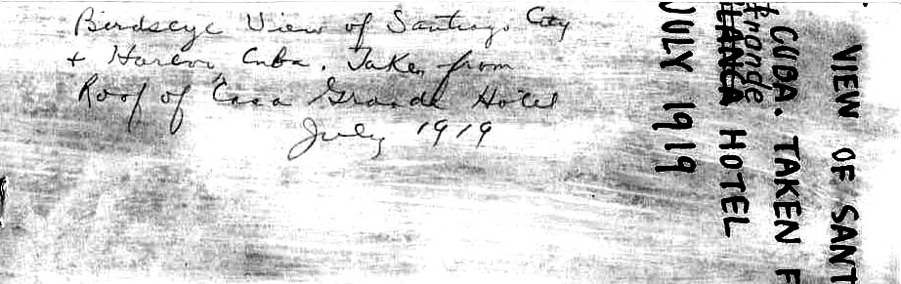 Birdseye View of Santiago City
+ Harbor, Cuba. Taken from
Roof of Casa Grande Hotel
July 1919
VIEW OF SANT
CUBA. TAKEN F
HOTEL
JULY 1919